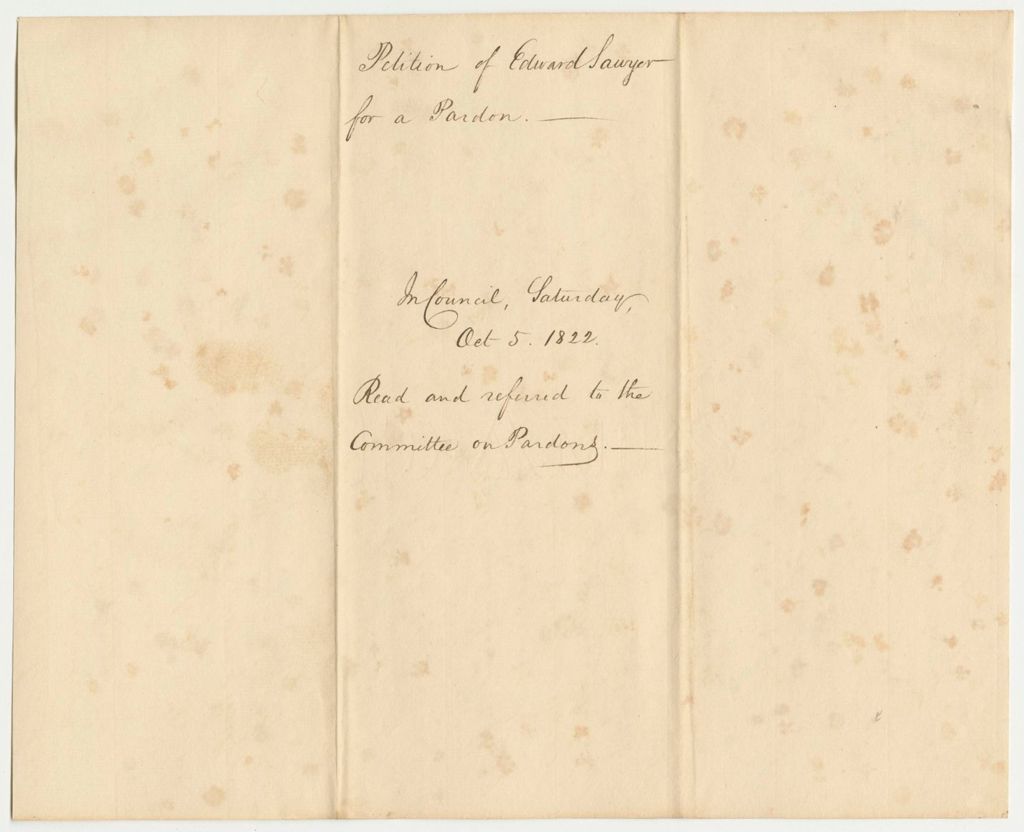 Petition of Edward Sawyer
for a Pardon. —
In Council, Saturday,
Oct 5. 1822.
Read and referred to the
Committee on Pardons. —